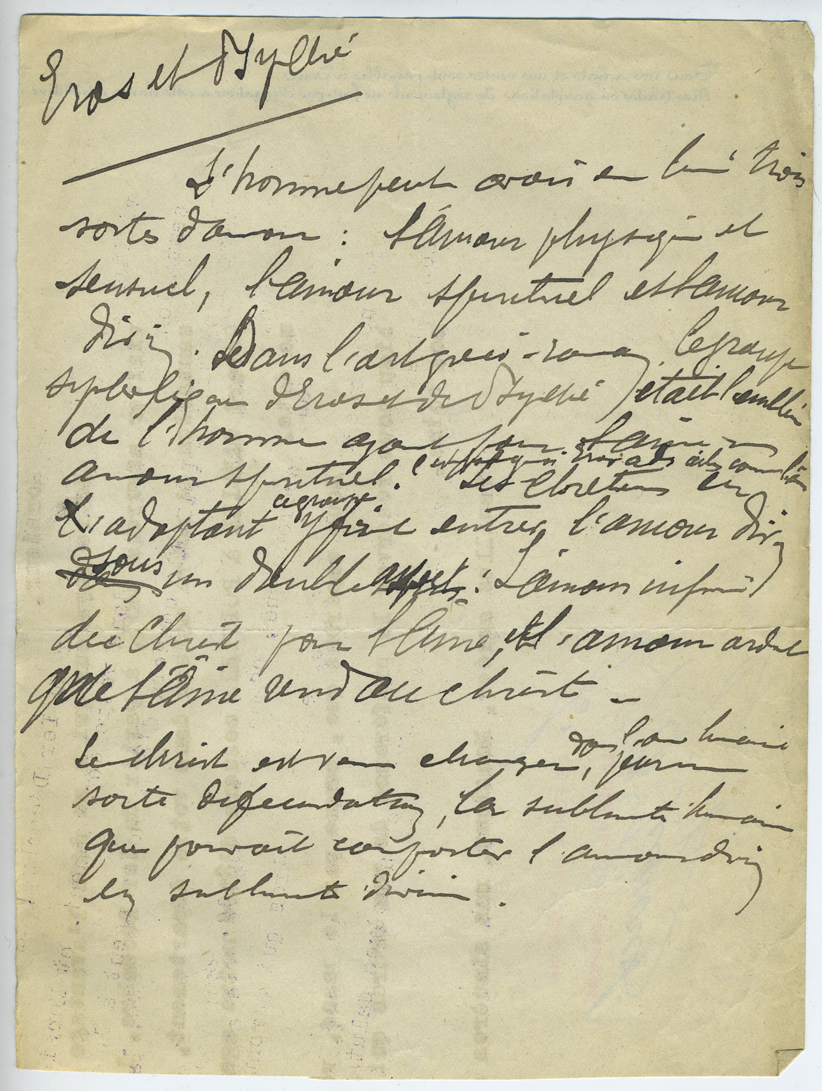 Eros et Psyché
L'homme peut avoir en lui trois
sortes d'amour : l'amour physique et
sensuel, l'amour spirituel et l'amour
divin. Dans l'art gréco-romain, le groupe
d'Eros et de Psyché était l'emblème
de l'homme ayant pour l'âme un
amour spirituel. Les Chrétiens en
l'adoptant ce groupe y firent entrer l'amour divin
sous un double aspect : L'amour infini
du Christ pour l'âme, et l'amour ardent
que l'âme rend au Christ -
Le Christ est venu changer, dans l'amour humain par une
sorte de fécondation, la sublimité humaine
que pouvait comporter l'amour divin
en sublimité divine.